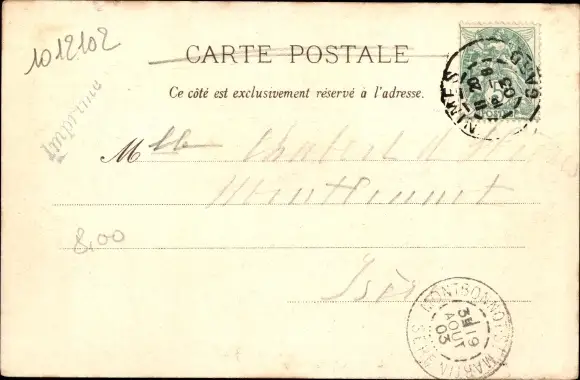 1012102
CARTE POSTALE
Ce côté est exclusivement réservé à l'adresse.
Imprimé
Mlle Chabert d'Hières
Montbonnot
8,00
Isère
NIMES GARD
03
MONTBONNOT-ST-MARTIN ISÈRE
3E
19
AOUT
03